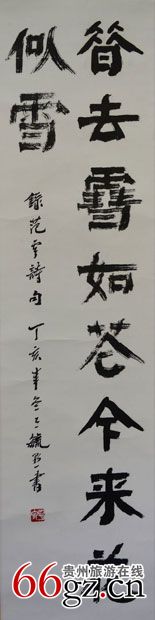 昔去雪如花今来花
似雪
錄范雲詩句 丁亥年冬 毓 書
贵州旅游在线
66gz.cn